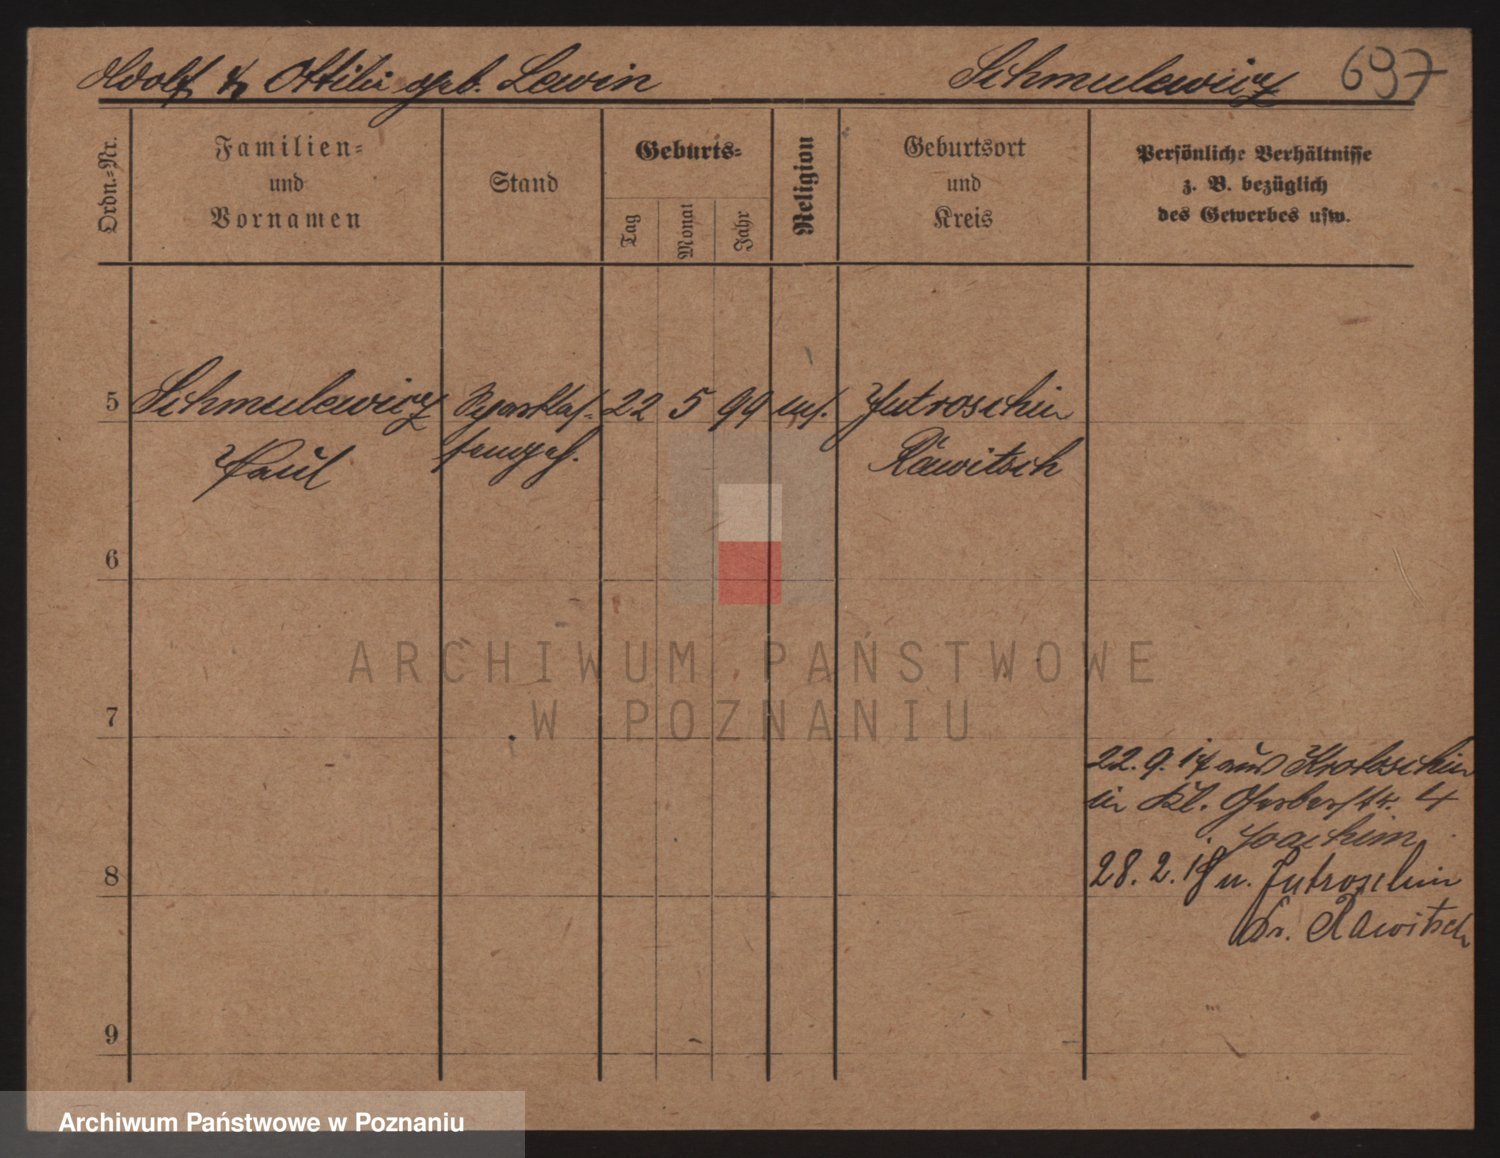 Adolf & Ottilie geb. Lewin Schmulewicz 697
Ordn.-Nr.
Familien-
und
Vornamen
Stand
Geburts-
Tag
Monat
Jahr
Religion
Geburtsort
und
Kreis
Persönliche Verhältnisse
z. B. bezüglich
des Gewerbes usw.
5 Schmulewicz Sparkas- 22 5 99 mos. Jutroschin
Paul sengeh. Rawitsch
6
7
22. 9. 17 aus Krotoschin
in Kl. Gerberstr. 4
Joachim
8
28. 2. 18 n. Jutroschin
Kr. Rawitsch
9
ARCHIWUM PAŃSTWOWE
W POZNANIU
Archiwum Państwowe w Poznaniu